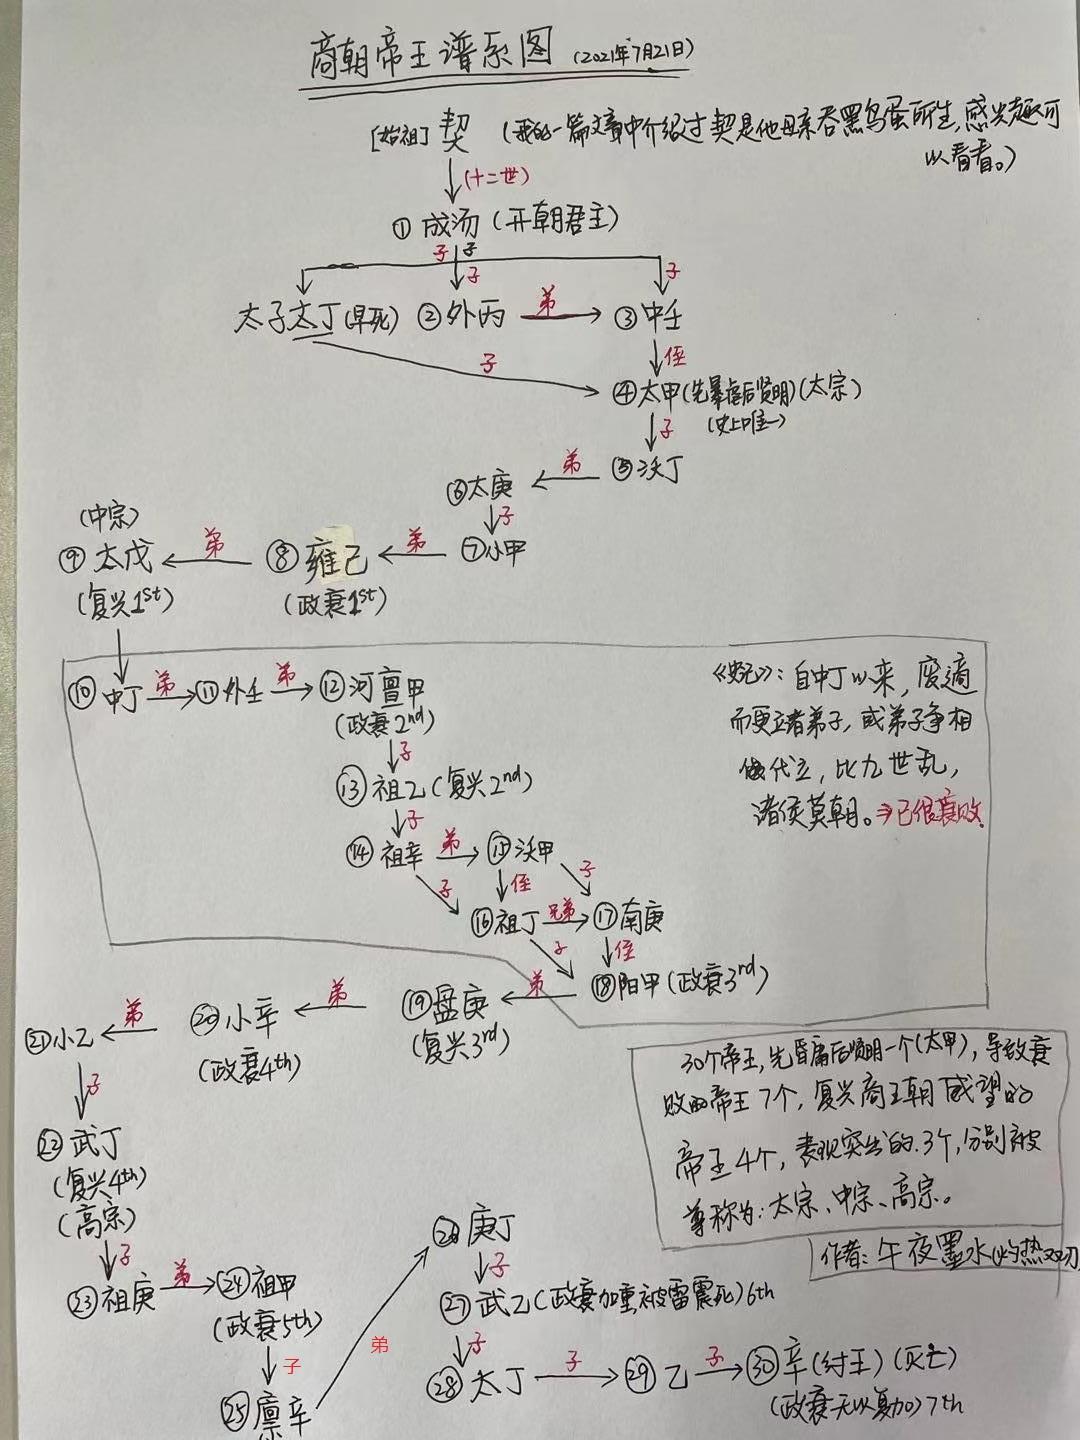 商朝帝王谱系图 (2021年7月21日)
[始祖] 契 (我的一篇文章中介绍过契是他母亲吞黑鸟蛋所生,感兴趣可
以看看。)
(十二世)
① 成汤 (开朝君主)
子 子
子 子
太子太丁(早死) ②外丙 弟 ③中壬
子 侄
④太甲(先暴虐后贤明)(太宗)
(史上唯一)
子
⑥太庚 弟 ⑤沃丁
子
(中宗)
⑨太戊 弟 ⑧雍己 弟 ⑦小甲
(复兴1st) (政衰1st)
⑩中丁 弟 ⑪外壬 弟 ⑫河亶甲
(政衰2nd)
子
⑬祖乙(复兴2nd)
子
⑭祖辛 弟 ⑮沃甲
子 侄 子
⑯祖丁 兄弟 ⑰南庚
子 侄
⑱阳甲(政衰3rd)
《史记》:自中丁以来,废適
而更立诸弟子,或弟子争相
代立,比九世乱,
诸侯莫朝。⇒已很衰败.
㉑小乙 弟 ⑳小辛 弟 ⑲盘庚 弟
(政衰4th) (复兴3rd)
子
㉒武丁
(复兴4th)
(高宗)
子
㉓祖庚 弟 ㉔祖甲
(政衰5th)
子
㉕廪辛
弟
㉖庚丁
子
㉗武乙(政衰加重,被雷震死)6th
子
㉘太丁 子 ㉙乙 子 ㉚辛(纣王)(灭亡)
(政衰无以复加)7th
30个帝王,先昏庸后贤明一个(太甲),导致衰
败的帝王7个,复兴商王朝威望的
帝王4个,表现突出的3个,分别被
尊称为:太宗、中宗、高宗。
作者:午夜墨水(灼热双刃